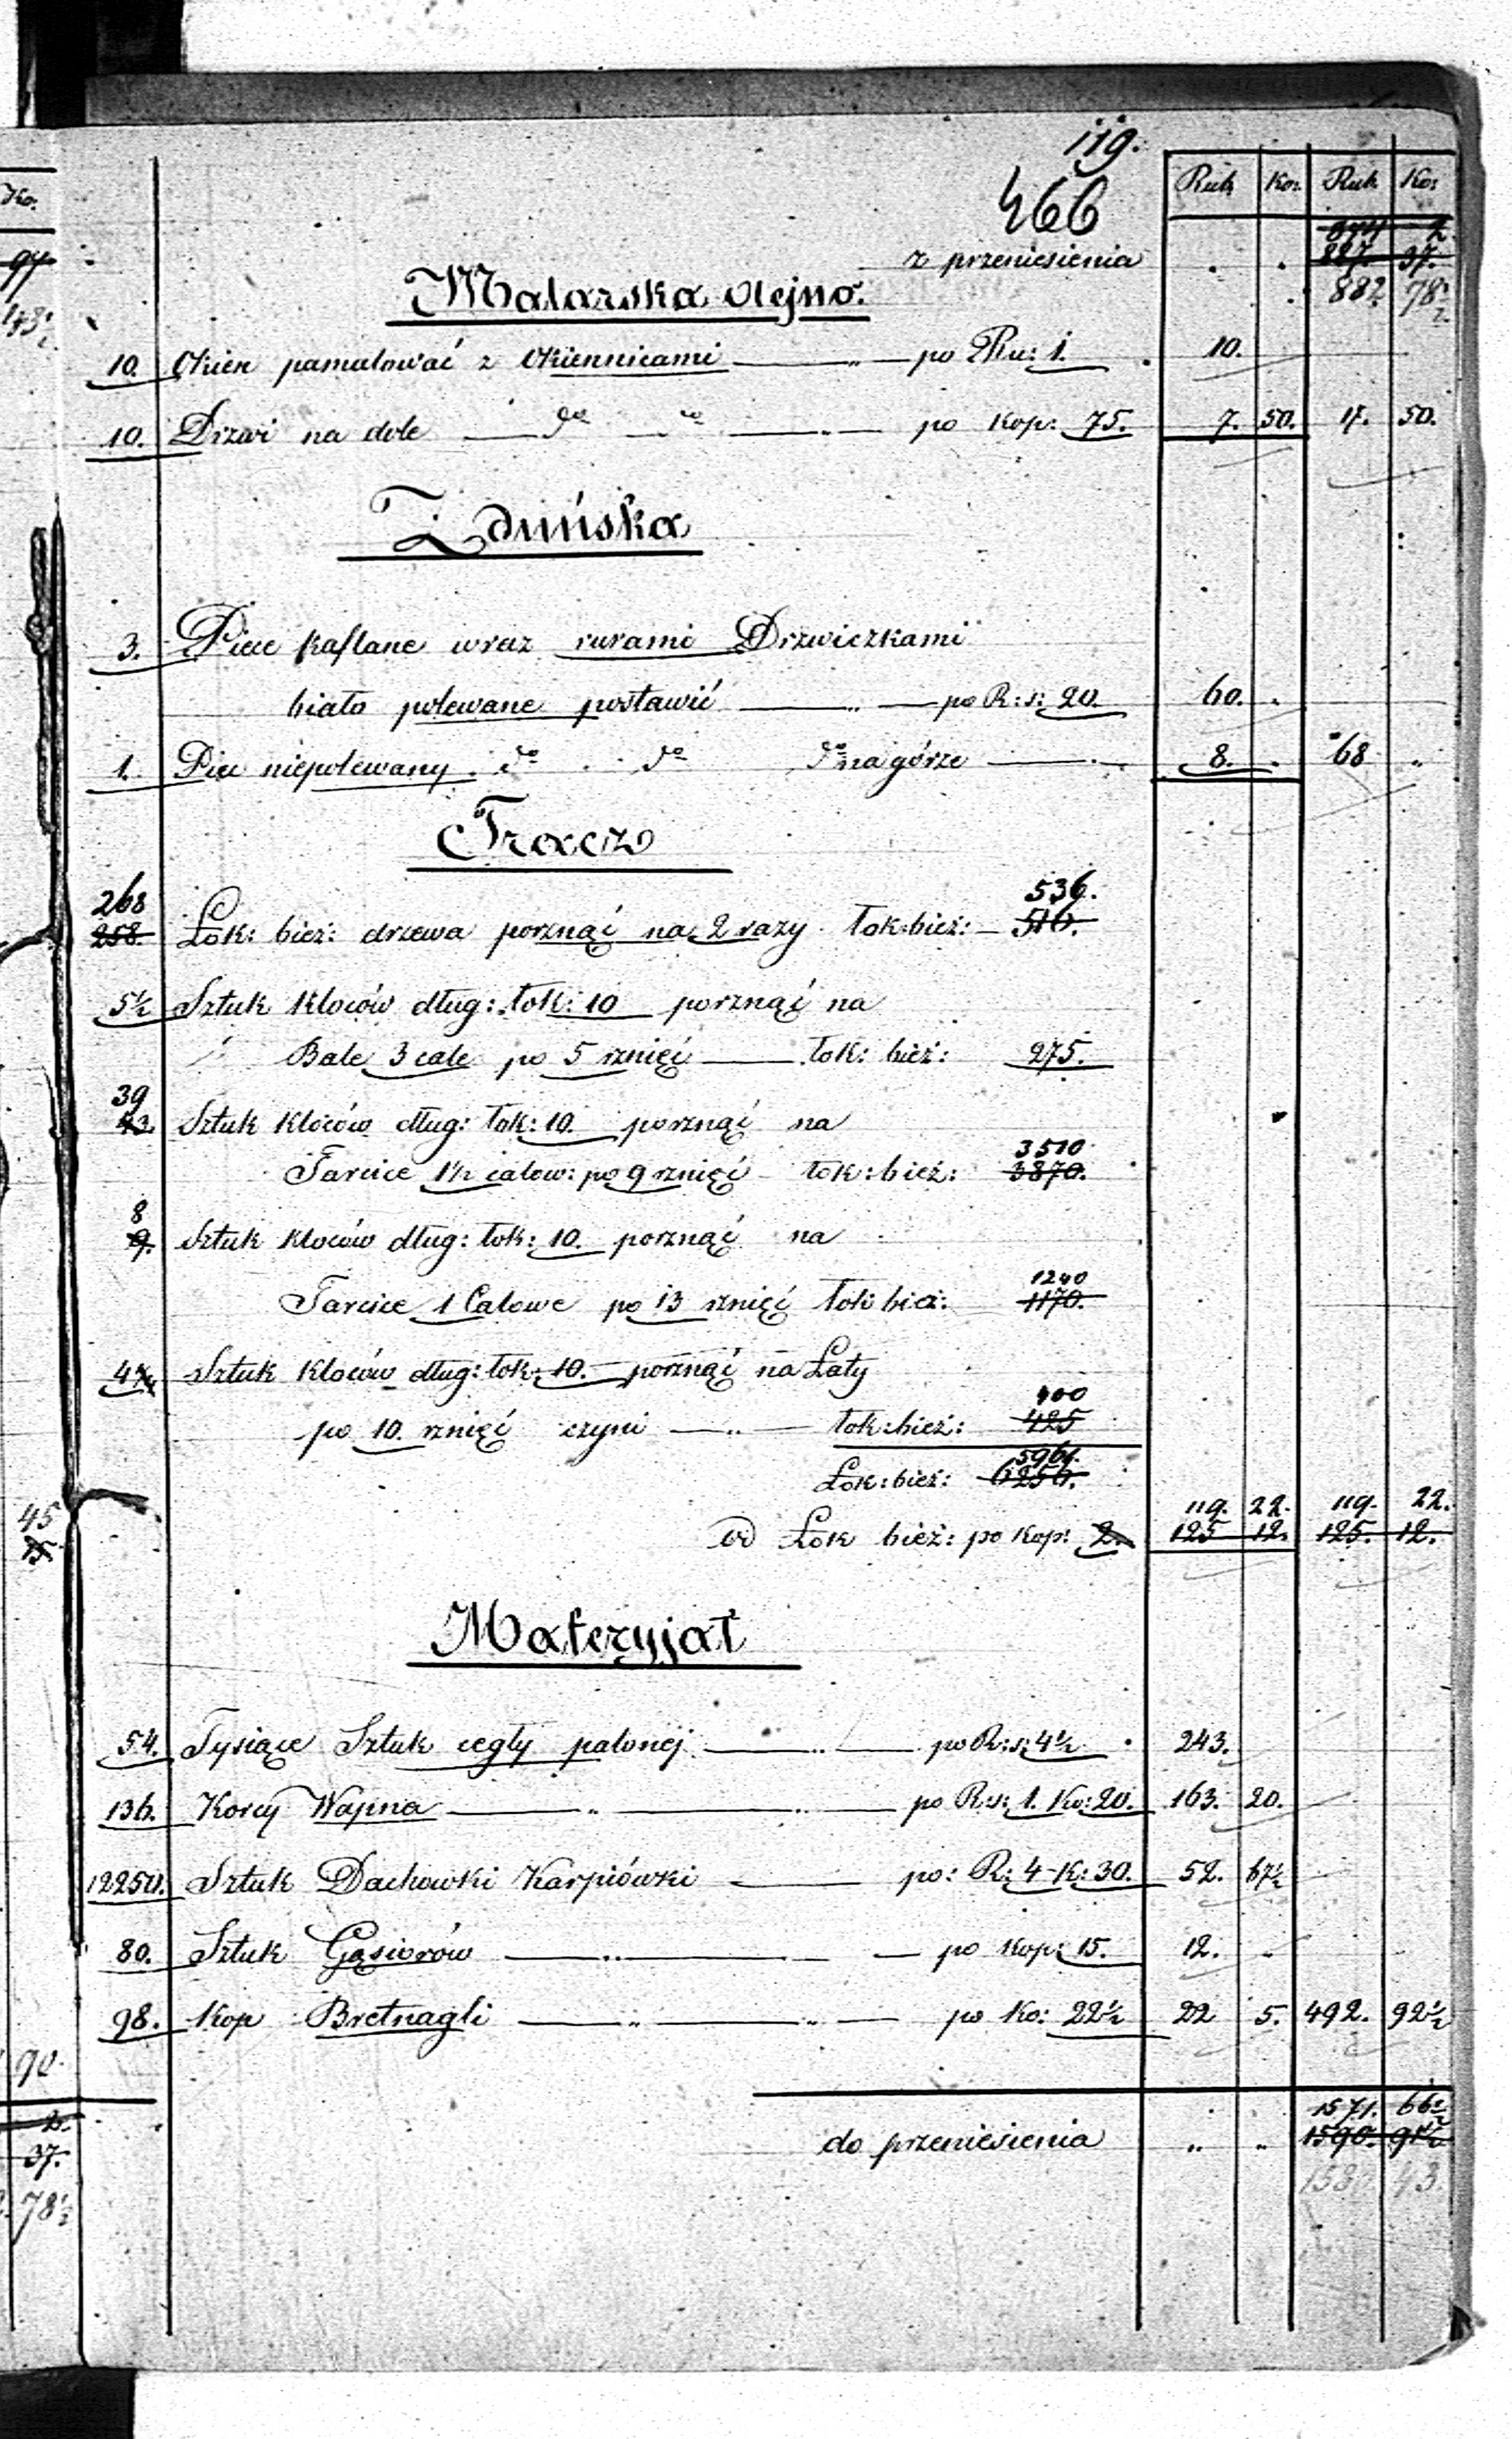 119.
466
Rub. Ko: Rub. Ko:
z przeniesienia . . 874 2
227. 37.
882 78½
Malarska olejno.
10. Okien pamalować z Okiennicami — „ — po Ru: 1. 10.
10. Drzwi na dole — do — do — „ — po kop: 75. 7. 50. 17. 50.
Zduńska
3. Piece kaflane wraz rurami Drzwiczkami
biało polewane postawić — „ — po R: s: 20. 60. .
1. Piec niepolewany . do . . do do na górze — 8. . 68 „
Tracz
268 536.
258. Łok: bież: drzewa porznąć na 2 razy łok: bież: — 516.
5½ Sztuk Kloców dług: łok: 10 porznąć na
Bale 3 cale po 5 rznięć — łok: bież: 275.
39
43. Sztuk Kloców dług: łok: 10. porznąć na
3510
Tarcice 1½ calow: po 9 rznięć łok: bież: 3870.
8
9. Sztuk Kloców dług: łok: 10. porznąć na
1240
Tarcice 1 Calowe po 13 rznięć łok: bież: 1170.
4¼ Sztuk Kloców dług: łok: 10. — porznąć na Łaty
400
po 10. rznięć czyni — „ — łok: bież: 425
5961.
Łok: bież: 6256.
119. 22. 119. 22.
od Łok bież: po kop: 2. 125 12. 125. 12.
Materyjał
54. Tysiące Sztuk cegły palonéj — „ — po R: s: 4½ 243.
136. Korcy Wapna — „ — „ — po R: s: 1. Ko: 20. 163. 20.
12250. Sztuk Dachowki Karpiówki — po: R: 4 - K: 30. 52. 67½
80. Sztuk Gąsiorów — „ — po kop: 15. 12. „
98. Kop Bretnagli — „ — „ — po Ko: 22½ 22 5. 492. 92½
1571. 66½
do przeniesienia „ „ 1590. 91½
1580. 43.